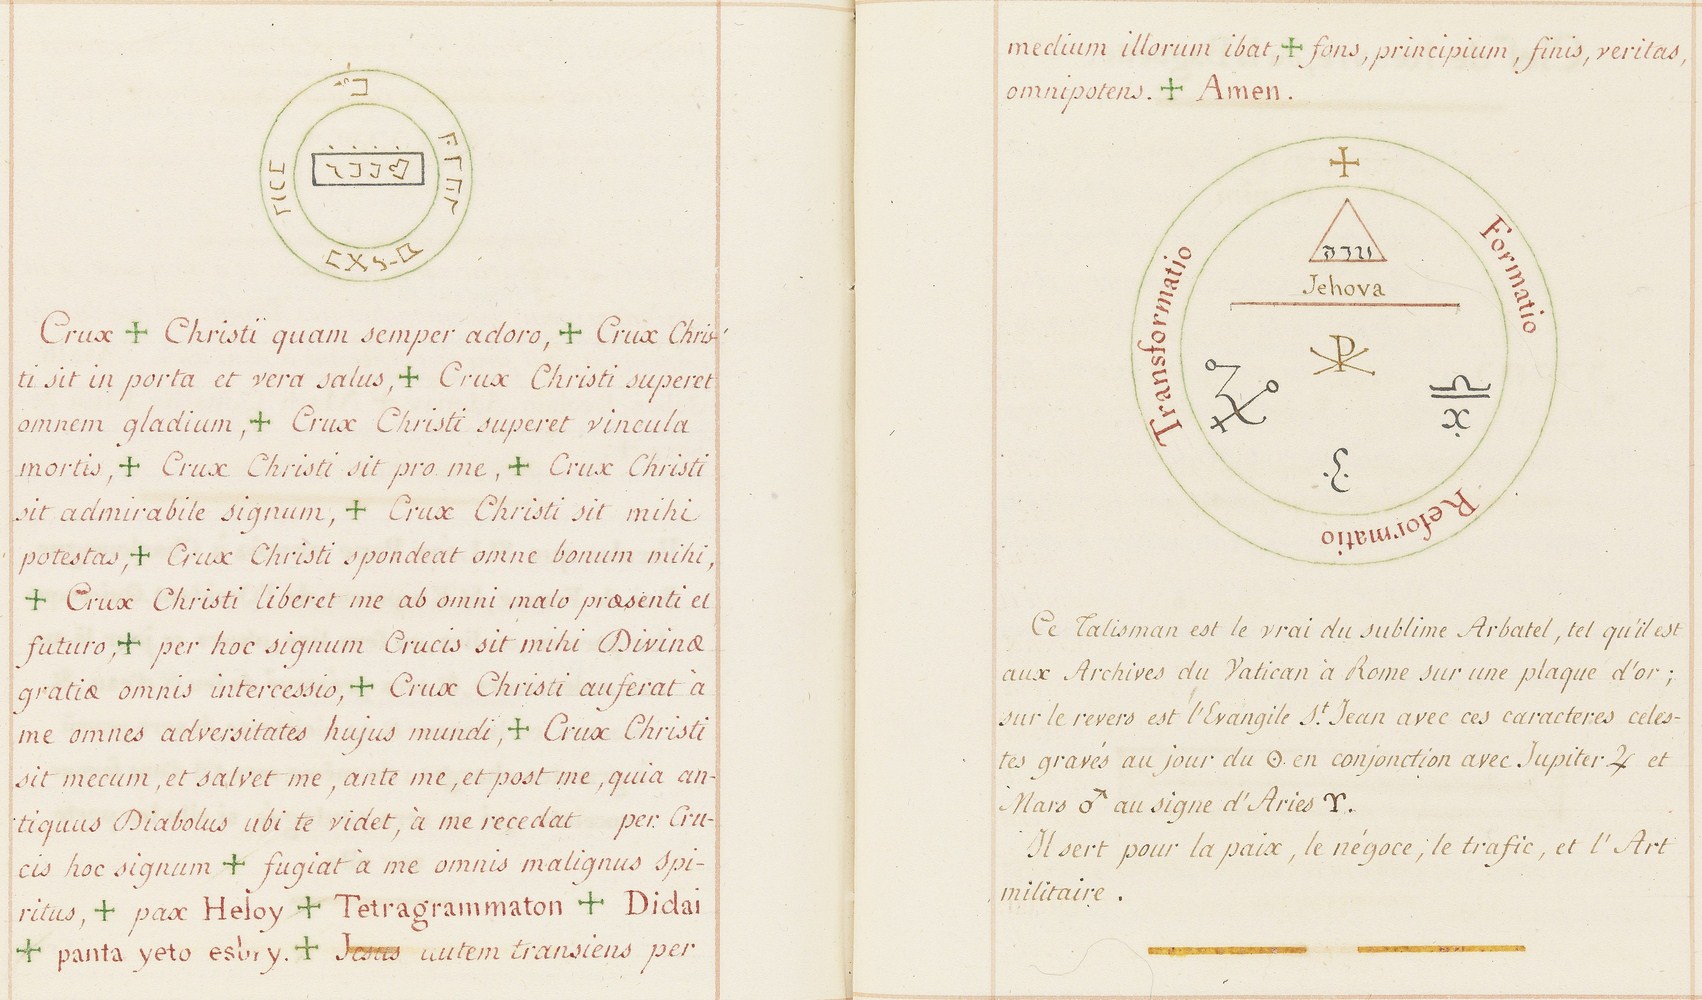 Crux + Christi quam semper adoro, + Crux Chris-
ti sit in porta et vera salus, + Crux Christi superet
omnem gladium, + Crux Christi superet vincula
mortis, + Crux Christi sit pro me, + Crux Christi
sit admirabile signum, + Crux Christi sit mihi
potestas, + Crux Christi spondeat omne bonum mihi,
+ Crux Christi liberet me ab omni malo præsenti et
futuro, + per hoc signum Crucis sit mihi Divinæ
gratiæ omnis intercessio, + Crux Christi auferat à
me omnes adversitates hujus mundi, + Crux Christi
sit mecum, et salvet me, ante me, et post me, quia an-
tiquus Diabolus ubi te videt, à me recedat per Cru-
cis hoc signum + fugiat à me omnis malignus Spi-
ritus, + pax Heloy + Tetragrammaton + Didai
+ panta yeto esbry. + Jesus autem transiens per
medium illorum ibat, + fons, principium, finis, veritas,
omnipotens. + Amen.
+
Formatio
Reformatio
Transformatio
Jehova
Ce Talisman est le vrai du sublime Arbatel, tel qu'il est
aux Archives du Vatican à Rome sur une plaque d'or;
sur le revers est l'Evangile St. Jean avec ces caracteres celes-
tes gravés au jour du ☉ en conjonction avec Jupiter ♃ et
Mars ♂ au signe d'Aries ♈.
Il sert pour la paix, le négoce, le trafic, et l'Art
militaire.